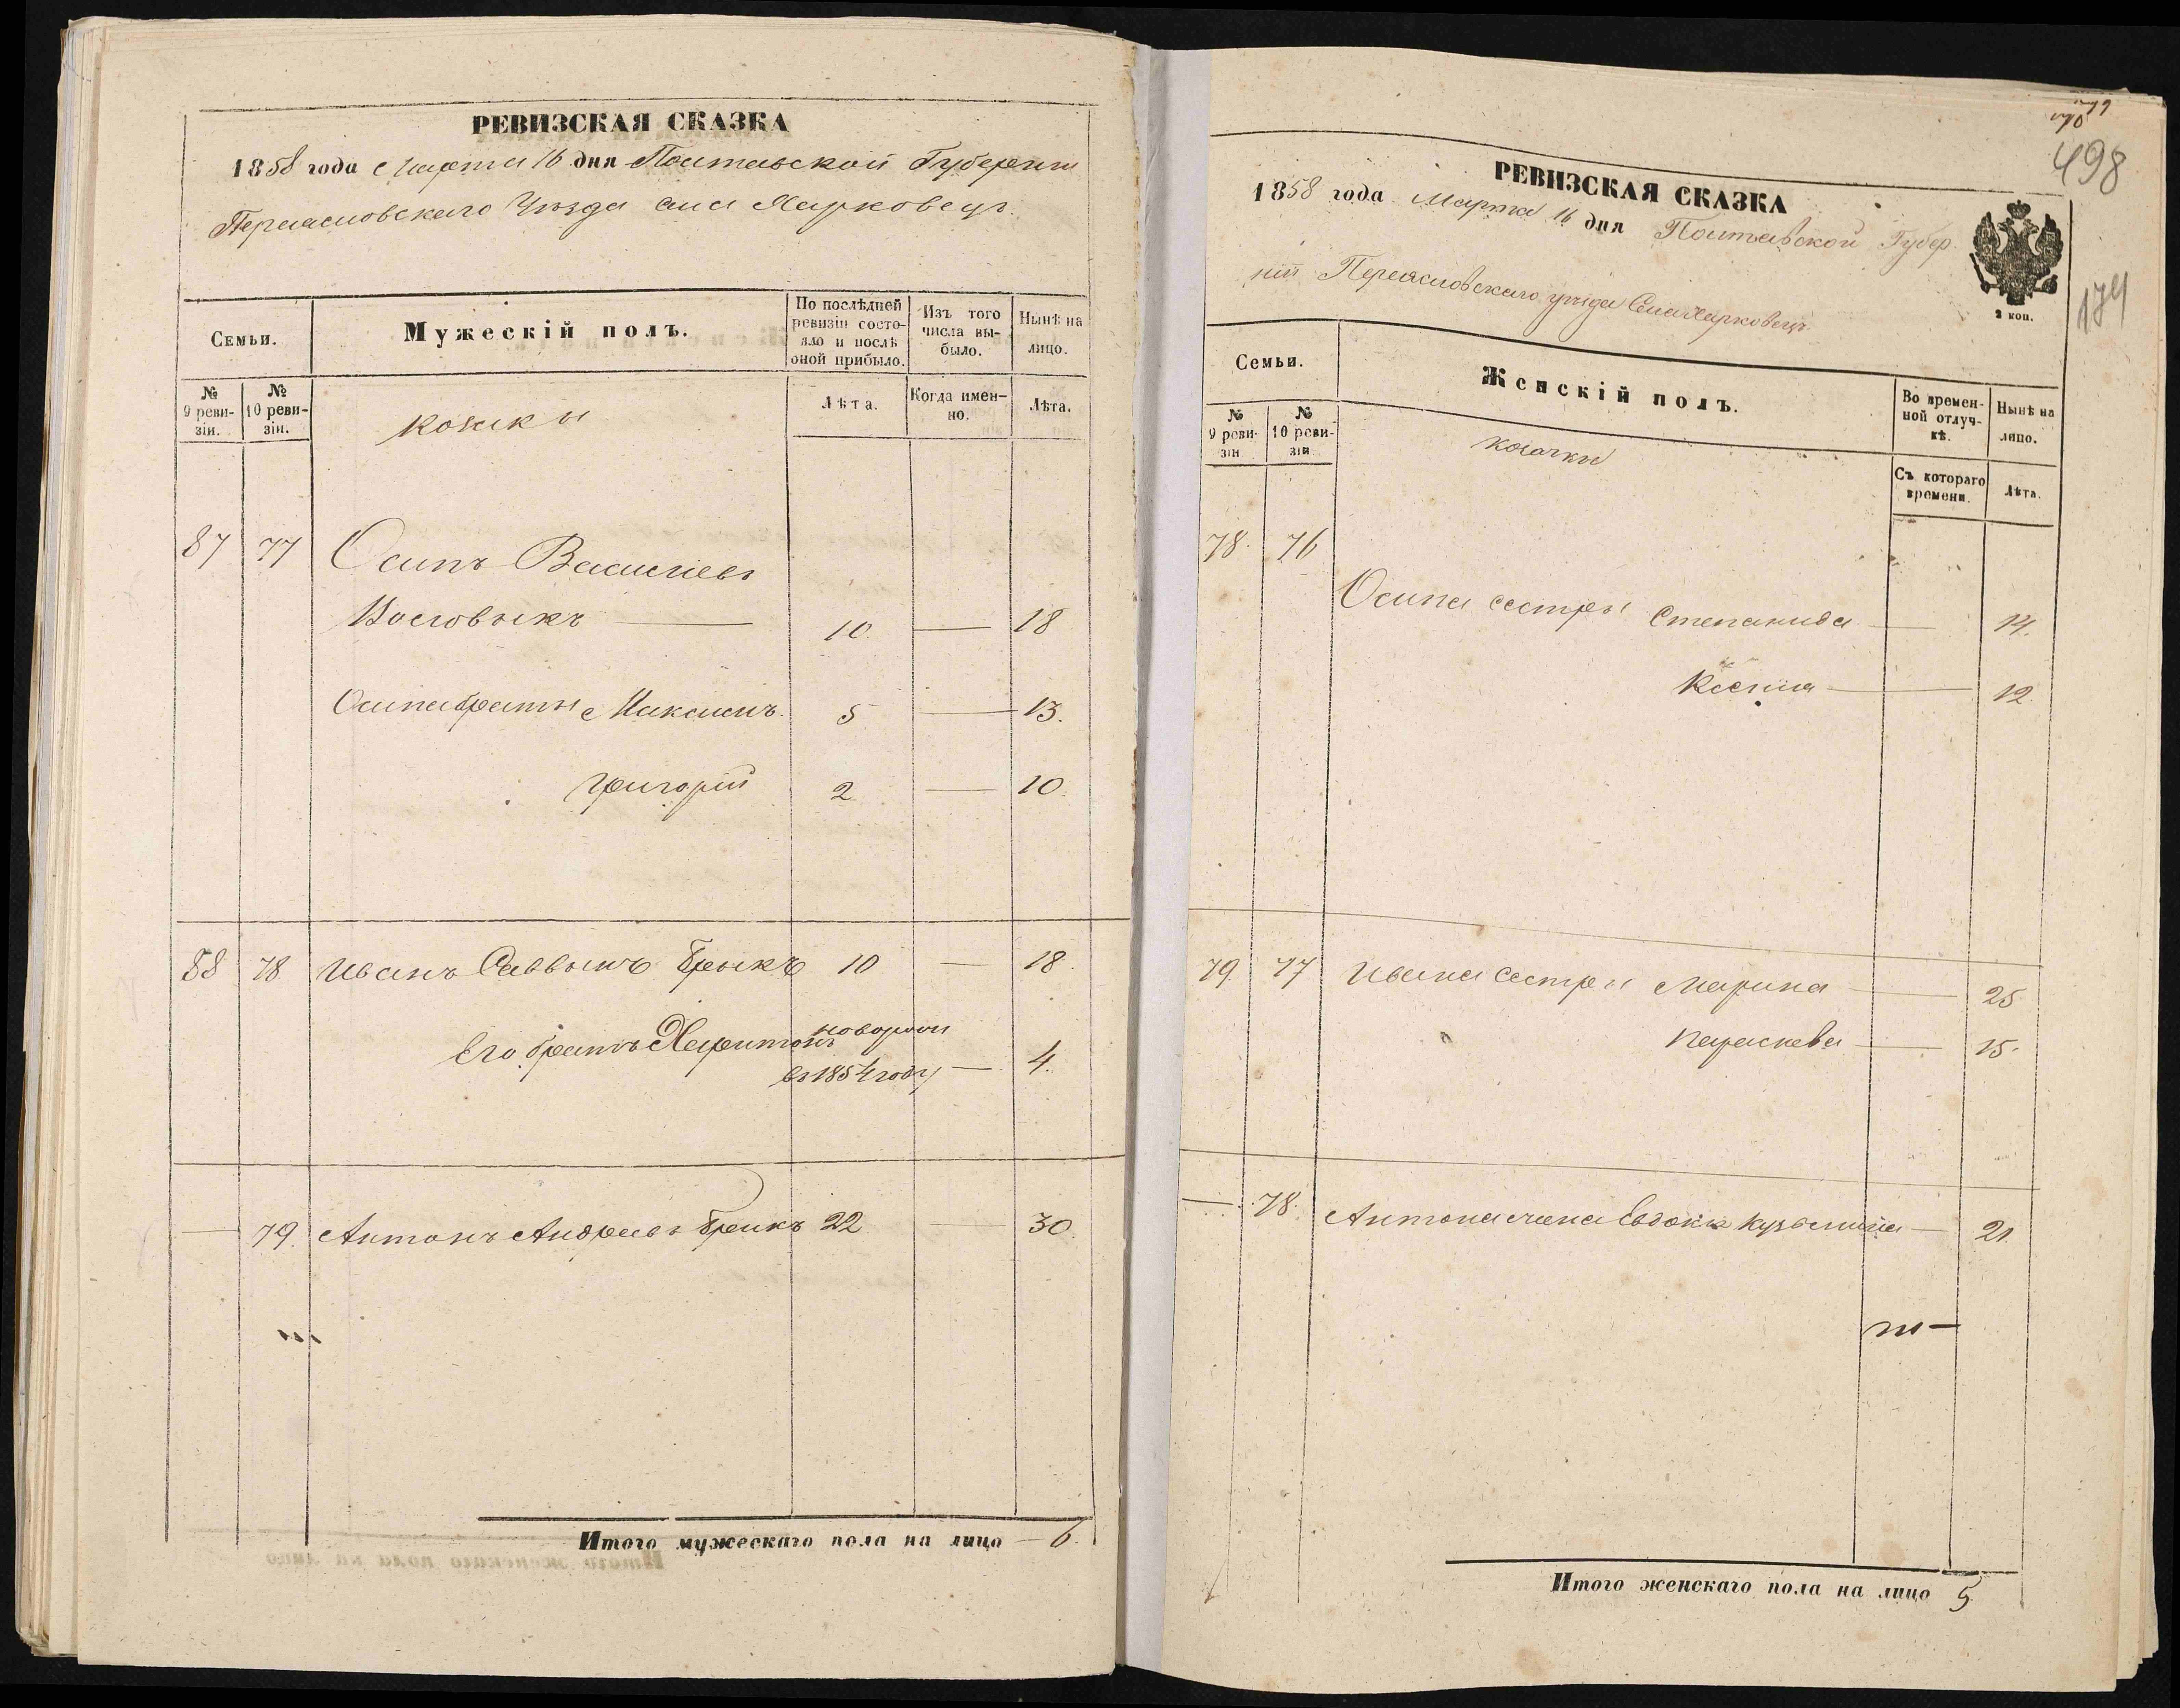 РЕВИЗСКАЯ СКАЗКА
1858 года Марта 16 дня Полтавской Губернии
Переяславскаго Уѣзда села Харковецъ
Семьи.
Мужескій полъ.
По послѣдней ревизіи состо-
яло и послѣ оной прибыло.
Изъ того числа вы-
было.
Нынѣ на лицо.
№ 9 реви-
зіи.
№ 10 реви-
зіи.
козаки
Лѣта.
Когда имен-
но.
Лѣта.
87 77 Осипъ Васильевъ
10 — 18
Осипа браты Максимъ 5 — 13.
Григорій 2 — 10.
88 78 Иванъ Саввинъ Брыкъ 10 — 18.
Его братъ Харитонъ новорож
въ 1854 году — 4.
— 79. Антонъ Андреевъ Брыкъ 22 — 30.
Итого мужескаго пола на лицо — 6.
498
174
РЕВИЗСКАЯ СКАЗКА
1858 года Марта 16 дня Полтавской Губер
ніи Переясловскаго уѣзда Села Харковецъ
2 коп.
Семьи.
Женскій полъ.
Во времен-
ной отлуч-
кѣ.
Нынѣ на лицо.
№ 9 реви-
зіи
№ 10 реви-
зіи
козачки
Съ котораго времени.
Лѣта.
78. 76
Осипа сестры Степанида — 14.
Ксенія — 12.
79. 77 Ивана сестры Марина — 25
Параскева — 15.
— 78. Антона жена Евдокія Кузьмина — 21.
Итого женскаго пола на лицо 5